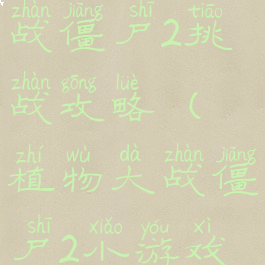 zhàn jiāng shī tiāo
战僵尸2挑
zhàn gōng lüè
战攻略(
zhí wù dà zhàn jiāng
植物大战僵
shī xiǎo yóu xì
尸2小游戏